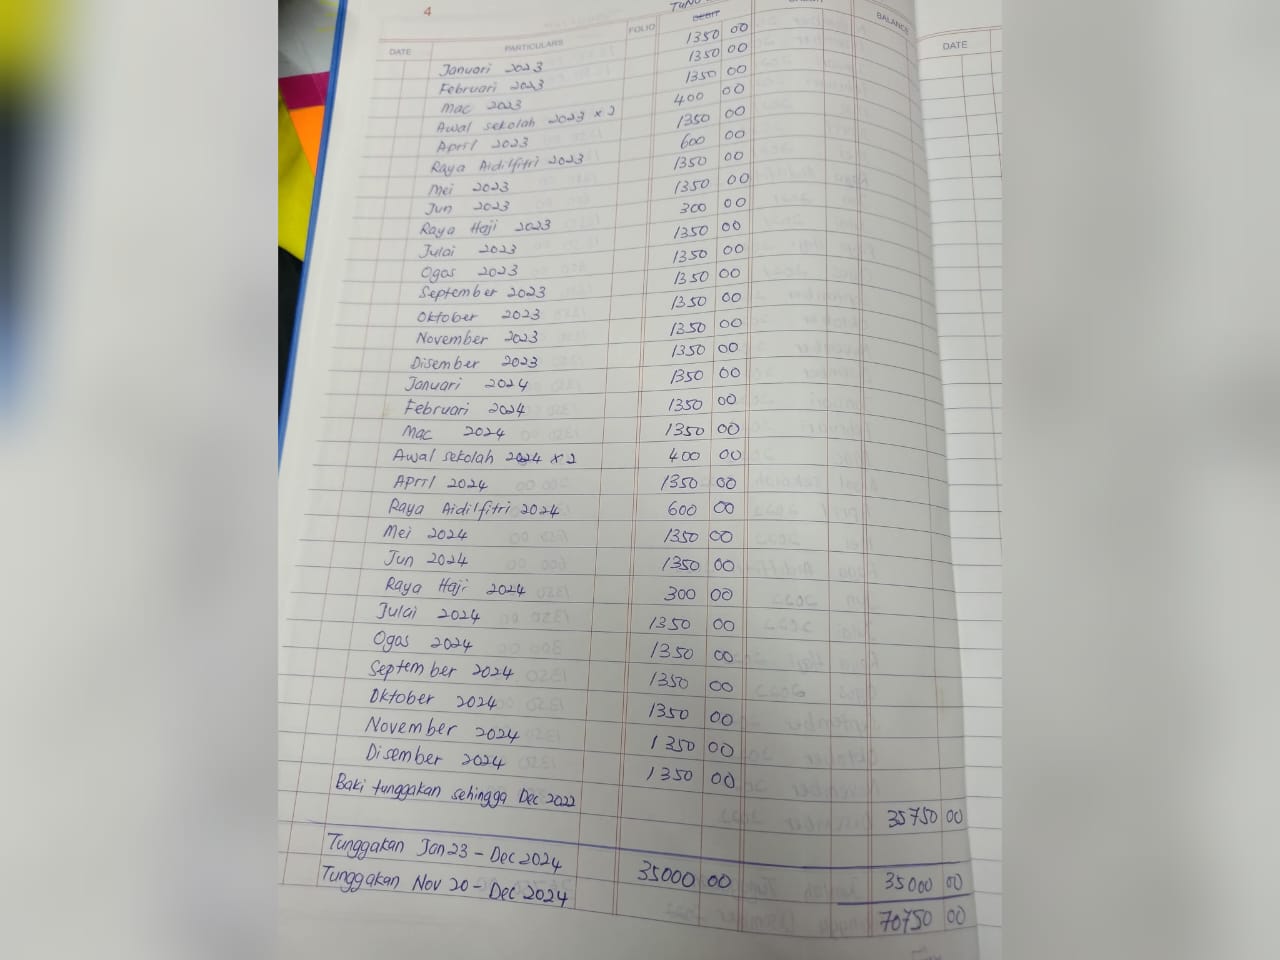 4
DATE PARTICULARS FOLIO DEBIT BALANCE DATE
Januari 2023 1350 00
Februari 2023 1350 00
Mac 2023 1350 00
Awal sekolah 2023 x 2 400 00
April 2023 1350 00
Raya Aidilfitri 2023 600 00
Mei 2023 1350 00
Jun 2023 1350 00
Raya Haji 2023 300 00
Julai 2023 1350 00
Ogos 2023 1350 00
September 2023 1350 00
Oktober 2023 1350 00
November 2023 1350 00
Disember 2023 1350 00
Januari 2024 1350 00
Februari 2024 1350 00
Mac 2024 1350 00
Awal sekolah 2024 x 2 400 00
April 2024 1350 00
Raya Aidilfitri 2024 600 00
Mei 2024 1350 00
Jun 2024 1350 00
Raya Haji 2024 300 00
Julai 2024 1350 00
Ogos 2024 1350 00
September 2024 1350 00
Oktober 2024 1350 00
November 2024 1350 00
Disember 2024 1350 00
Baki tunggakan sehingga Dec 2022 35750 00
Tunggakan Jan 23 - Dec 2024 35000 00 35000 00
Tunggakan Nov 20 - Dec 2024 70750 00